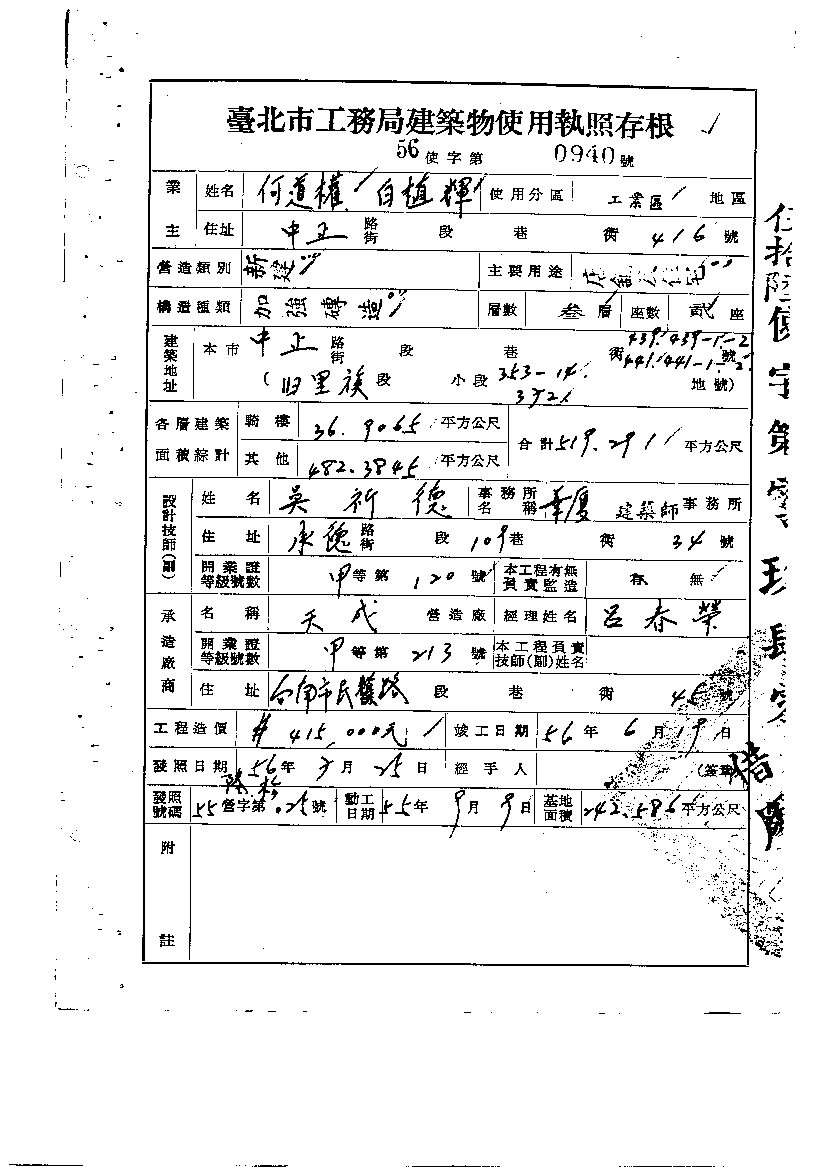 臺北市工務局建築物使用執照存根
56使字第 0940號
業主 姓名 何道權 白植輝 使用分區 工業區 地區
住址 中正 路街 段 巷 衖 416 號
營造類別 新建 主要用途 店舖 住宅
構造種類 加強磚造 層數 叁層 座數 貳座
建築地址 本市 中正 路街 段 巷 衖 439.439-1.-2 441.441-1.-2 號
(旧里族段 小段 353-14. 地號)
各層建築面積綜計 騎樓 36.9065 平方公尺 合計 519.291 平方公尺
其他 482.3845 平方公尺
設計技師(副) 姓名 吳祈德 事務所名稱 建築師事務所
住址 承德 路街 段 109巷 衖 34 號
開業證等級號數 甲等第 120 號 本工程有無負責監造 無
承造廠商 名稱 天成 營造廠 經理姓名 呂春榮
開業證等級號數 甲等第 213 號 本工程負責技師(副)姓名
住址 台南市民權路 段 巷 衖 45 號
工程造價 #415,000元 竣工日期 56年6月19日
發照日期 56年 月25日 經手人 (簽章)
發照號碼 55營字第 號 動工日期 55年9月9日 基地面積 242.586 平方公尺
附註
伍拾陸使字第零玖肆零